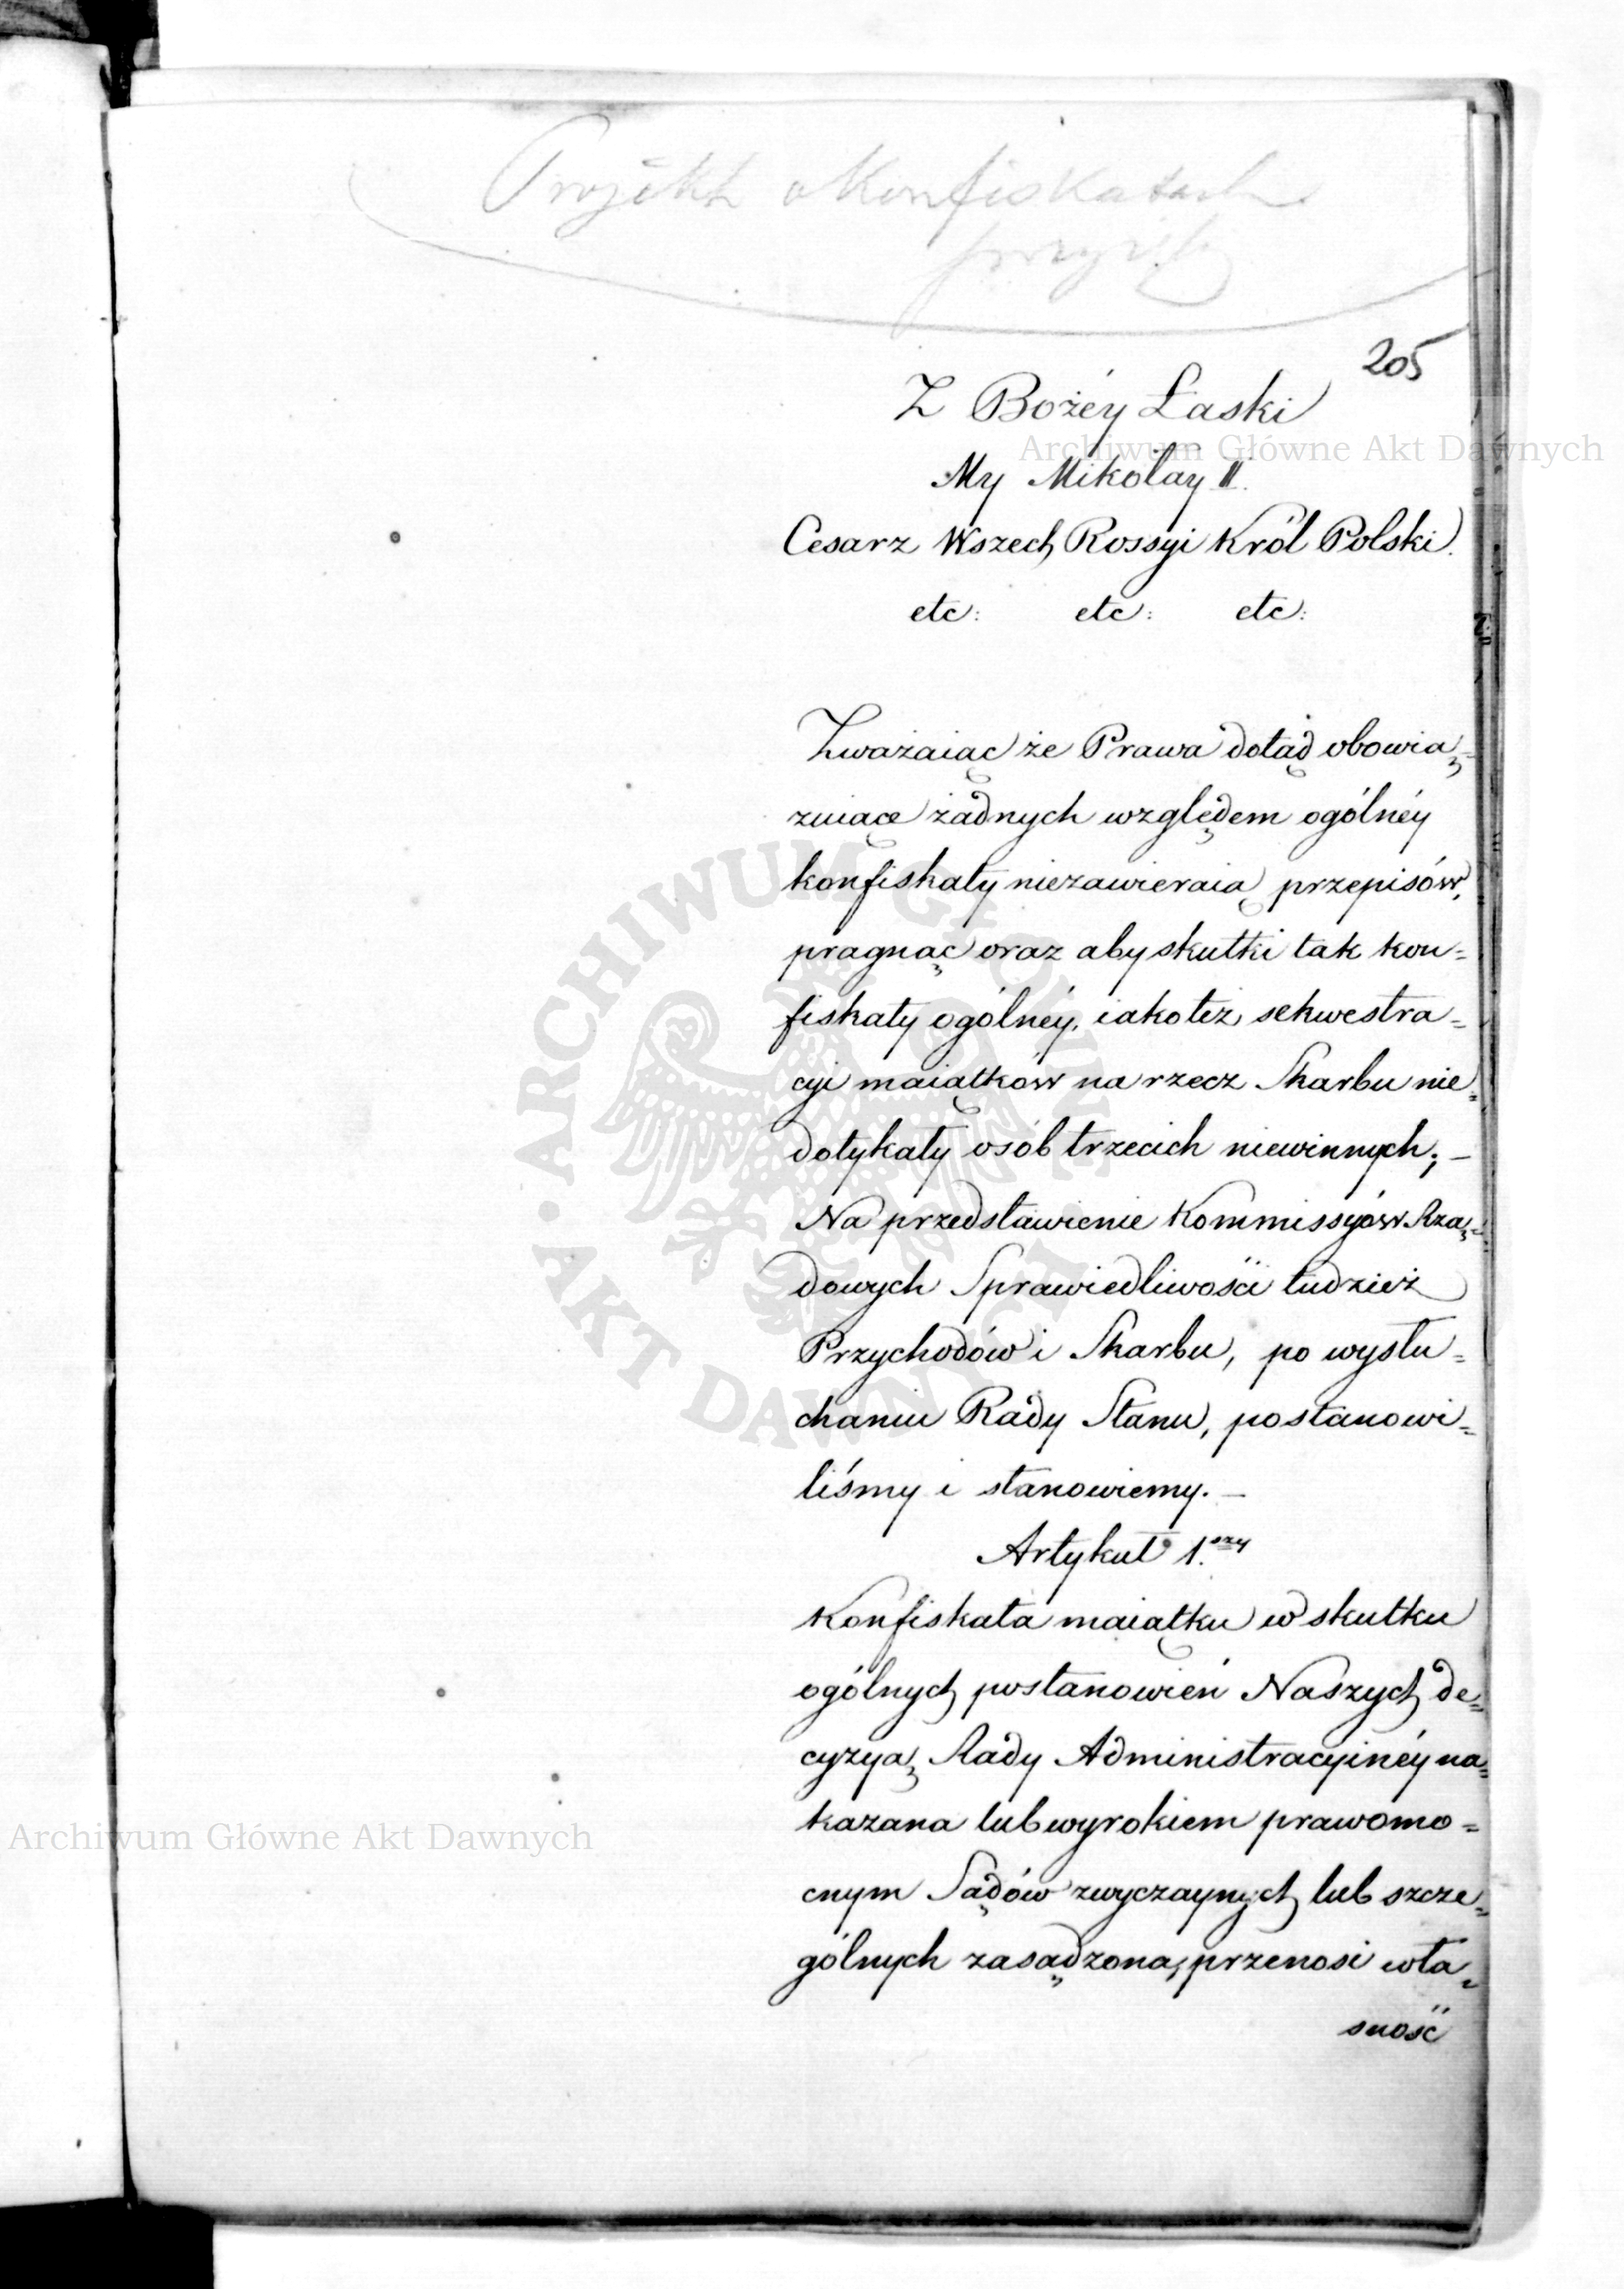 Projekt o Konfiskatach
205
Z Bożéy Łaski
My Mikołay II.
Cesarz Wszech Rossyi Król Polski.
etc: etc: etc:
Zważaiąc że Prawa dotąd obowią=
zuiące żadnych względem ogólnéy
konfiskaty niezawieraią przepisów,
pragnąc oraz aby skutki tak kon=
fiskaty ogólnéy, iakoteż sekwestra=
cyi maiątków na rzecz Skarbu nie=
dotykały osób trzecich niewinnych; —
Na przedstawienie Kommissyów Rzą=
dowych Sprawiedliwości tudzież
Przychodów i Skarbu, po wysłu=
chaniu Rady Stanu, postanowi=
liśmy i stanowiemy. —
Artykuł 1.szy
Konfiskata maiątku w skutku
ogólnych postanowień Naszych de=
cyzyą Rady Administracyinéy na=
kazana lub wyrokiem prawomo=
cnym Sądów zwyczaynych lub szcze=
gólnych zasądzona, przenosi wła=
sność
Archiwum Główne Akt Dawnych
Archiwum Główne Akt Dawnych
ARCHIWUM GŁÓWNE
AKT DAWNYCH